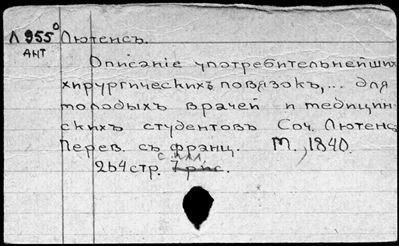 Л 955° Лютенсъ.
АНТ
Описаніе употребительнейших
хирургическихъ повязокъ,... для
молодыхъ врачей и медицин-
скихъ студентовъ Соч. Лютенс
Перев. съ франц. М., 1840.
с илл.
264 стр. 7 рис.